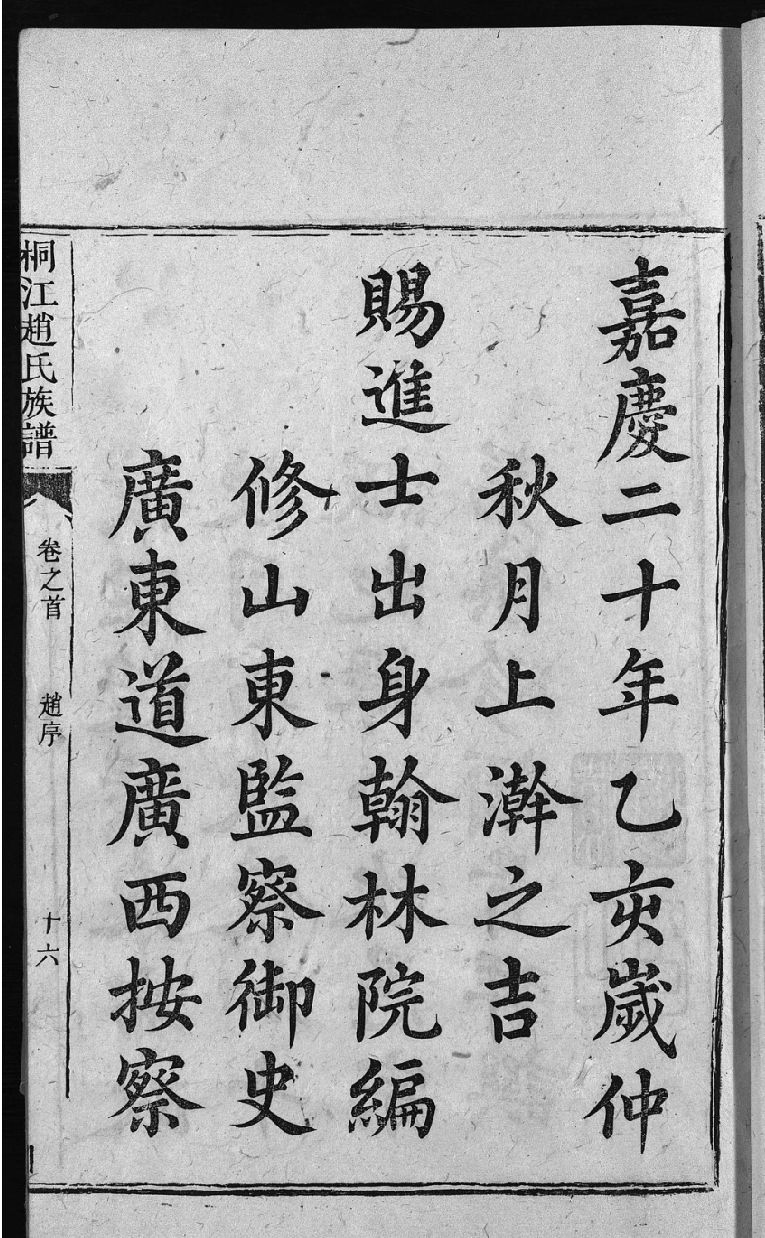 嘉慶二十年乙亥歲仲
秋月上澣之吉
賜進士出身翰林院編
修山東監察御史
廣東道廣西按察
桐江趙氏族譜
卷之首
趙序
十六